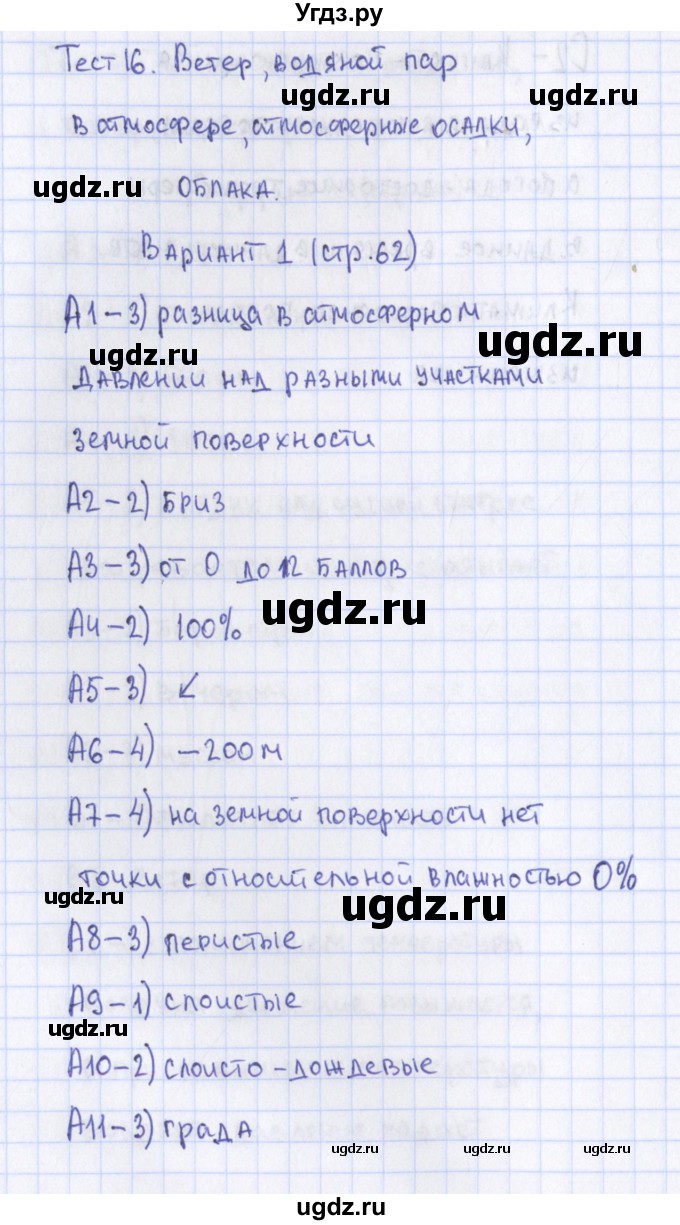 Угдз.ру
Тест 16. Ветер, водяной пар
ugdz.ru ugdz.ru
в атмосфере, атмосферные осадки,
ugdz.ru облака.
Вариант 1 (стр.62)
А1-3) разница в атмосферном
ugdz.ru ugdz.ru
давлении над разными участками
земной поверхности
А2-2) бриз
А3-3) от 0 до 12 баллов
ugdz.ru
А4-2) 100%
А5-3) ↙
А6-4) -200м
А7-4) на земной поверхности нет
точки с относительной влажностью 0%
ugdz.ru ugdz.ru
А8-3) перистые
А9-1) слоистые
ugdz.ru
А10-2) слоисто-дождевые
А11-3) града
ugdz.ru ugdz.ru
ugdz.ru